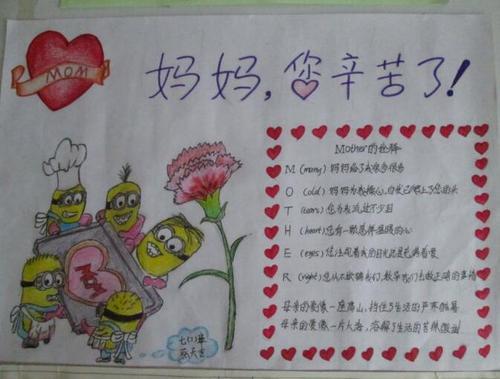 MOM
妈妈,您辛苦了!
Mother的诠释
M (many) 妈妈给了我很多很多
O (old) 妈妈为我操心,白发已爬上了您的头
T (tears) 您为我流过不少泪
H (heart) 您有一颗慈祥温暖的心
E (eyes) 您注视着我的目光总是充满着爱
R (right) 您从不欺骗我们,教导我们去做正确的事情
母亲的爱像一座高山,挡住了生活的严寒
母亲的爱像一片大海,溶解了生活的苦
MOM
七(1)班